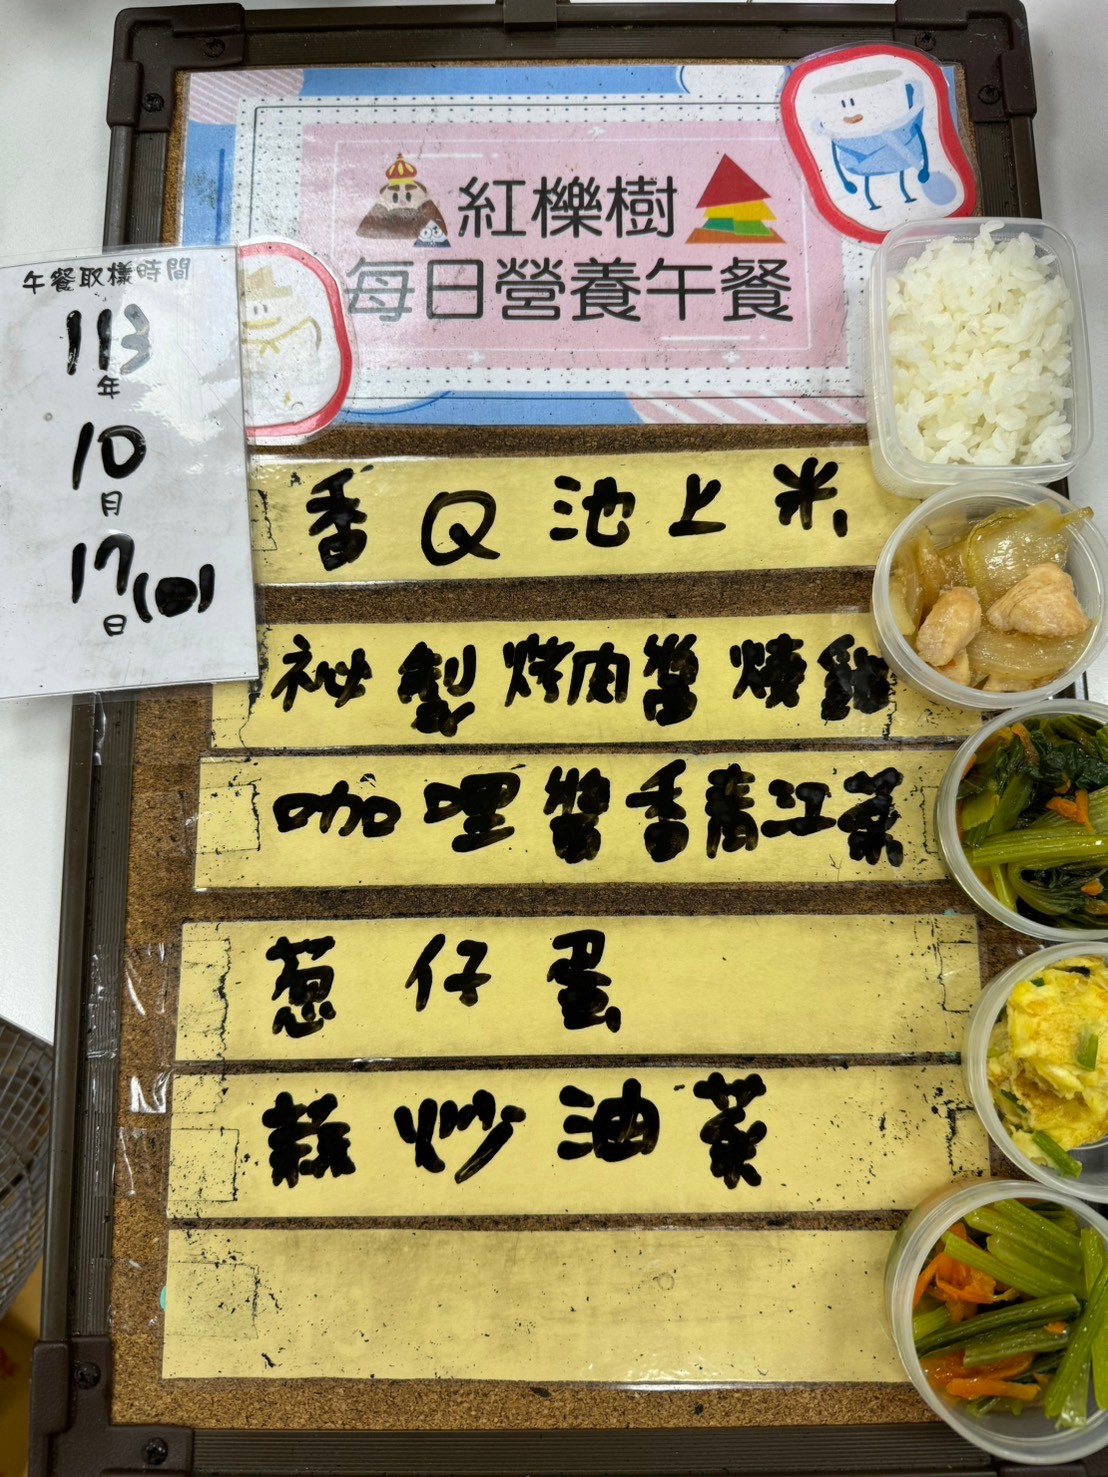 紅櫟樹
每日營養午餐
午餐取樣時間
113
年
10
月
17(四)
日
香Q池上米
祕製烤肉醬燒雞
咖哩醬香青江菜
蔥仔蛋
蒜炒油菜